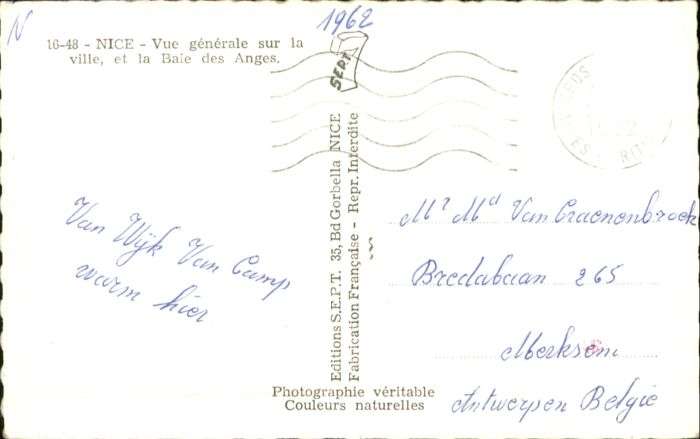 N
1962
16-48 - NICE - Vue générale sur la
ville, et la Baie des Anges.
SEPT
Van Wijk Van Camp
warm hier
Editions S.E.P.T. 35, Bd Gorbella NICE
Fabrication Française - Repr. Interdite
Photographie véritable
Couleurs naturelles
Mr Md Van Craenenbroeck
Bredabaan 265
Merksem
Antwerpen België